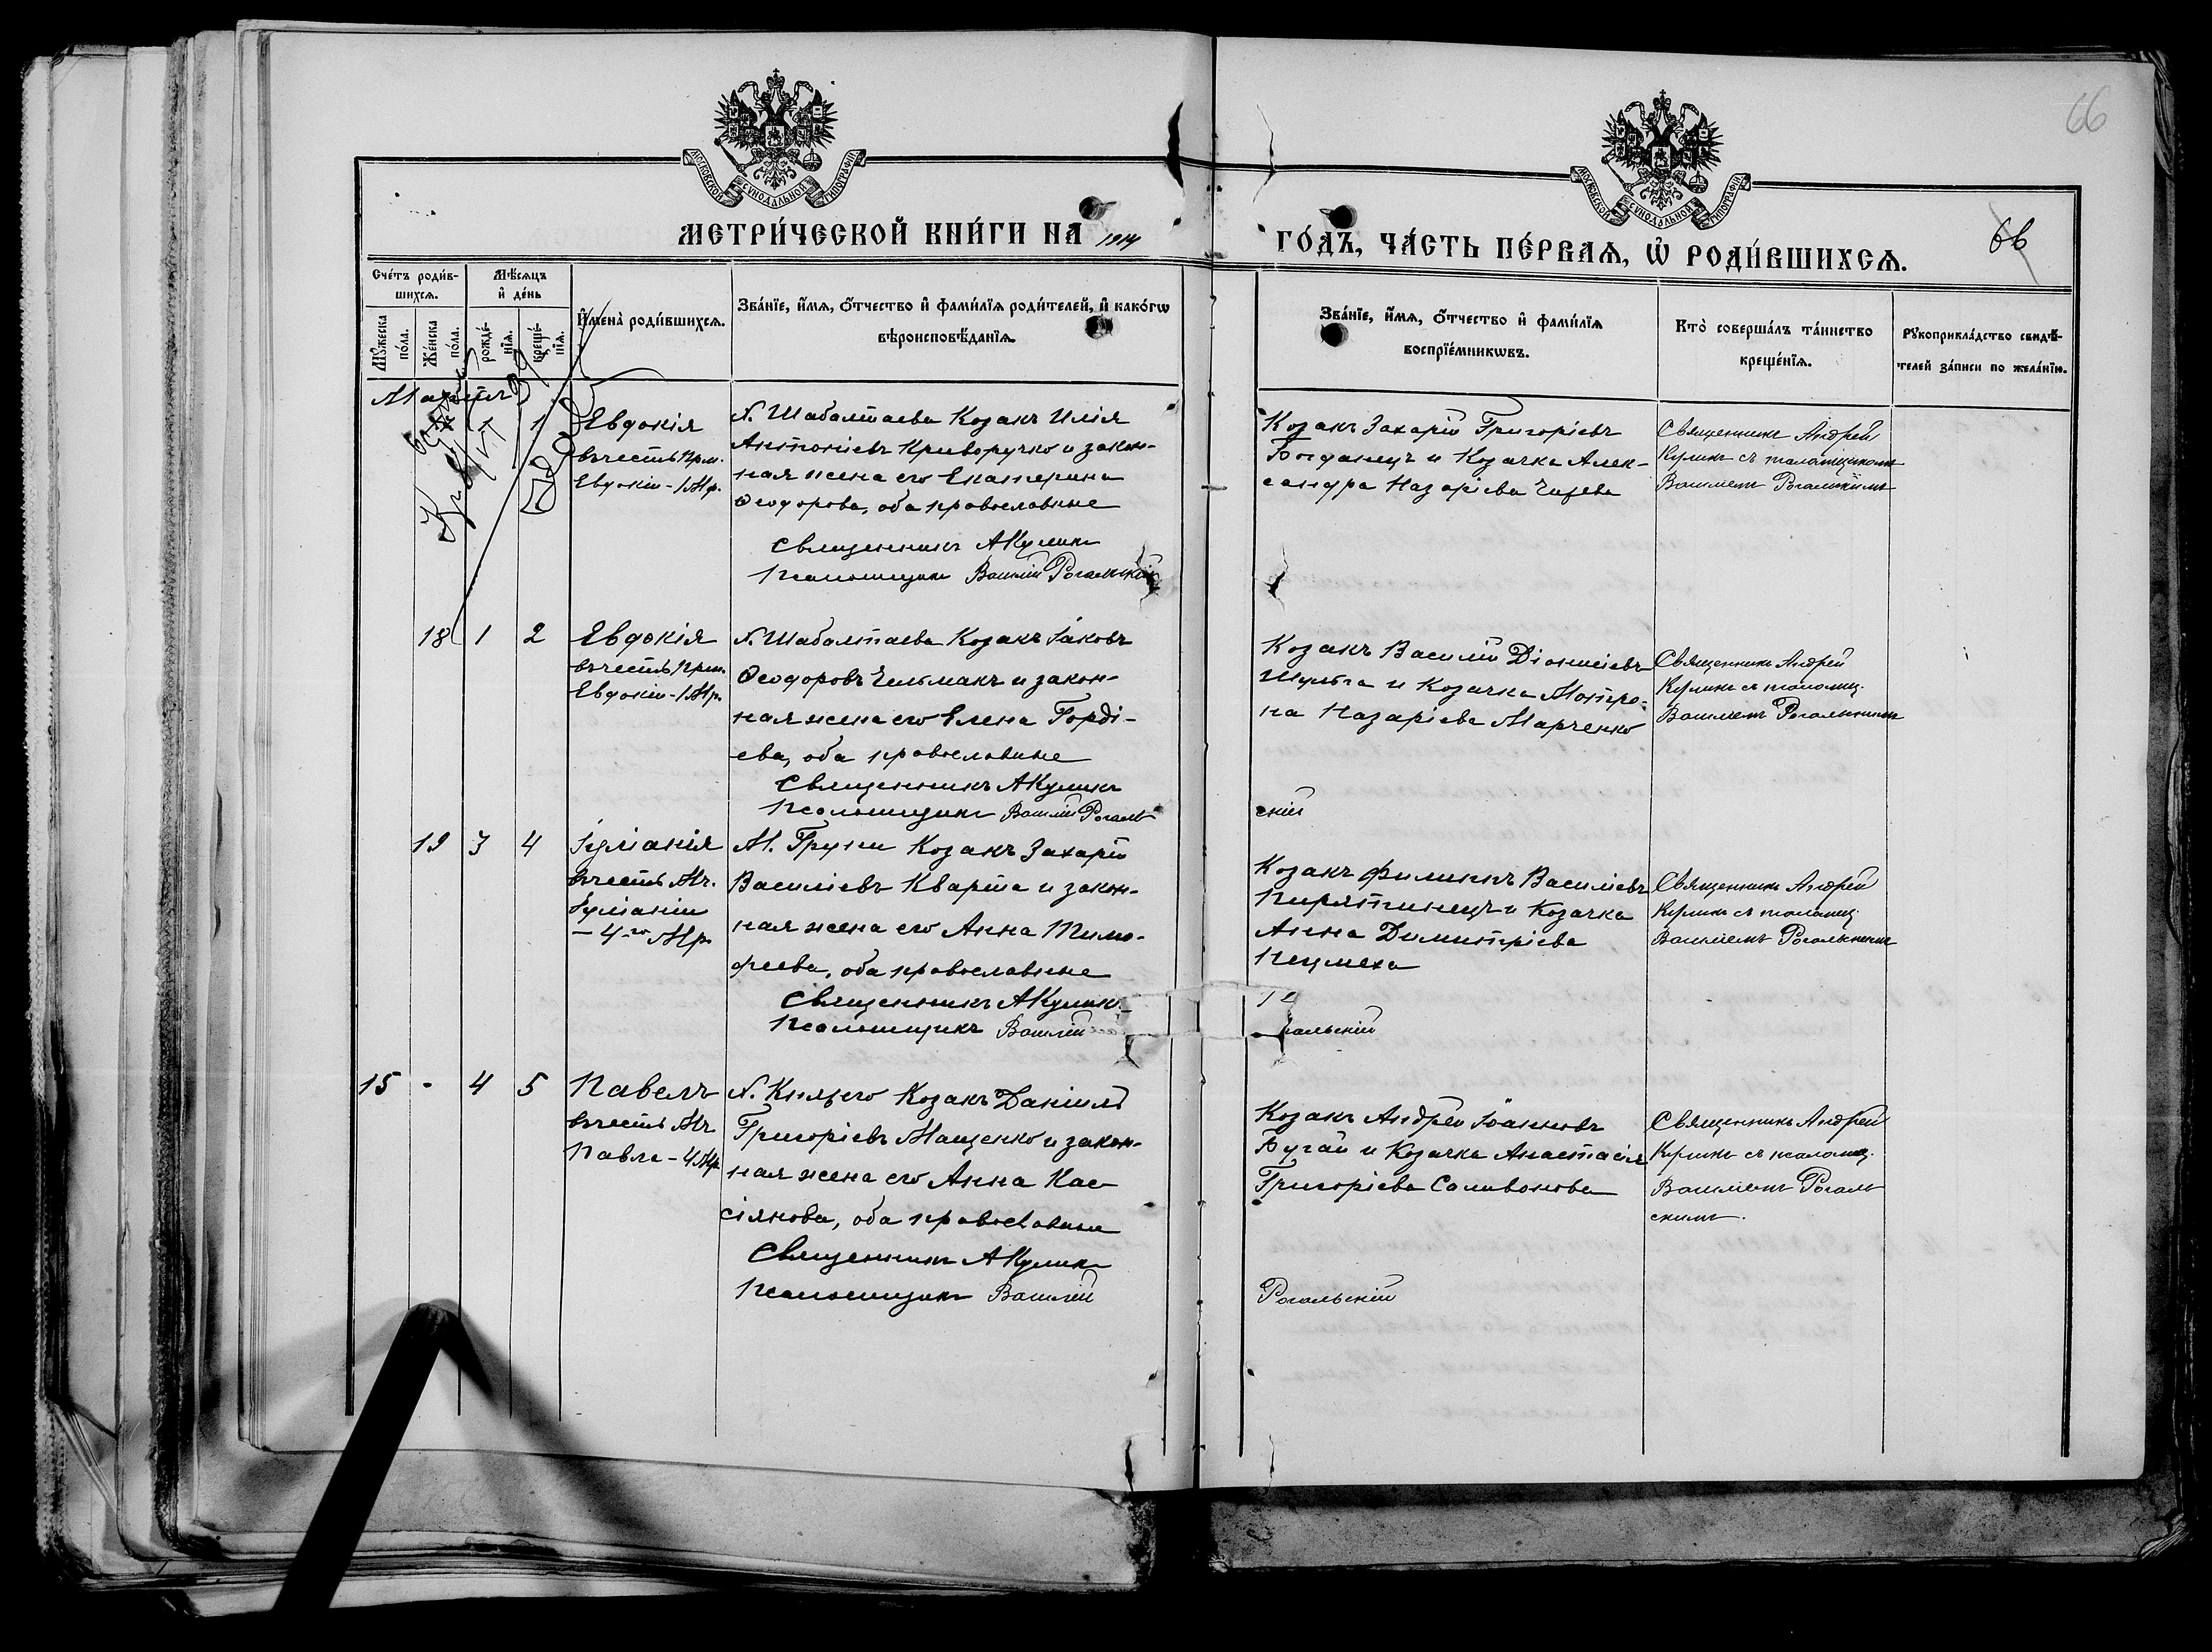 66
МОСКОВСКОЙ СѴНОДАЛЬНОЙ ТИПОГРАФІИ
МОСКОВСКОЙ СѴНОДАЛЬНОЙ ТИПОГРАФІИ
МЕТРИ́ЧЕСКОЙ КНИ́ГИ НА 1914
ГО́ДЪ, ЧА́СТЬ ПЕ́РВАѦ, Ѡ҆ РОДИ́ВШИХСѦ.
66
Сче́тъ роди́в-
шихсѧ.
Мѣ́сѧцъ
и҆ де́нь
Мꙋ́жеска по́ла.
Же́нска по́ла.
рожде́-
нїѧ.
креще́-
нїѧ.
И҆мена̀ роди́вшихсѧ.
Зва́нїе, и҆́мѧ, ѻ҆́тчество и҆ фами́лїѧ роди́телей, и҆ како́гѡ
вѣроисповѣ́данїѧ.
Зва́нїе, и҆́мѧ, ѻ҆́тчество и҆ фами́лїѧ
воспрїе́мникѡвъ.
Кто̀ соверша́лъ та́инство
креще́нїѧ.
Рꙋкоприкла́дство свидѣ́-
телей за́писи по жела́нїю.
Мартъ
1
Евдокія
въ честь Прм.
Евдокіи - 1 Мр.
х. Шабалтаева Козакъ Илія
Антоніевъ Криворучко и закон-
ная жена его Екатерина
Ѳеодорова, оба православные
Священникъ А Кулик
Псаломщикъ Василій Рогальскій
Козакъ Захарій Григоріевъ
Богданецъ и Козачка Алек-
сандра Назаріева
Священникъ Андрей
Куликъ съ псаломщикомъ
Василіемъ Рогальскимъ
18 1 2
Евдокія
въ честь Прм.
Евдокіи - 1 Мр.
х. Шабалтаева Козакъ Іаковъ
Ѳеодоровъ Чельмакъ и закон-
ная жена его Елена Горді-
ева, оба православные
Священникъ А Куликъ
Псаломщикъ Василій Рогаль
скій
Козакъ Василій Діонисіевъ
Шульга и Козачка Мотро-
на Назаріева Марченко
Священникъ Андрей
Куликъ съ псаломщ.
Василіемъ Рогальскимъ
19 3 4
Іуліанія
въ честь Мч.
Іуліаніи
- 4-го Мр.
М. Груни Козакъ Захарій
Василіевъ Кварта и закон-
ная жена его Анна Тимо-
феева, оба православные
Священникъ А Куликъ
Псаломщикъ Василій
гальскій
Козакъ Филиппъ Василіевъ
Пирятинецъ и Козачка
Анна Димитріева
Священникъ Андрей
Куликъ съ псаломщ.
Василіемъ Рогальскимъ
15 - 4 5
Павелъ
въ честь Мч.
Павла - 4 Мр.
х. Князего Козакъ Даніилъ
Григоріевъ Мащенко и закон-
ная жена его Анна Кас
сіянова, оба православные
Священникъ А Кулик
Псаломщикъ Василій
Рогальскій
Козакъ Андрей Іоанновъ
Бугай и Козачка Анастасія
Григоріева Саливонова
Священникъ Андрей
Куликъ съ псаломщ.
Василіемъ Рогаль
скимъ.